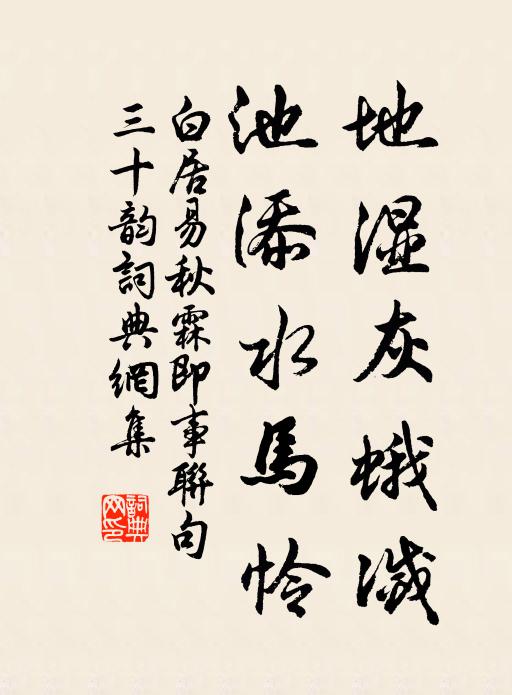 地湿灰蛾滅
池添水馬怜
白居易秋霖即事聯句
三十韵詞典網集
詞典網印